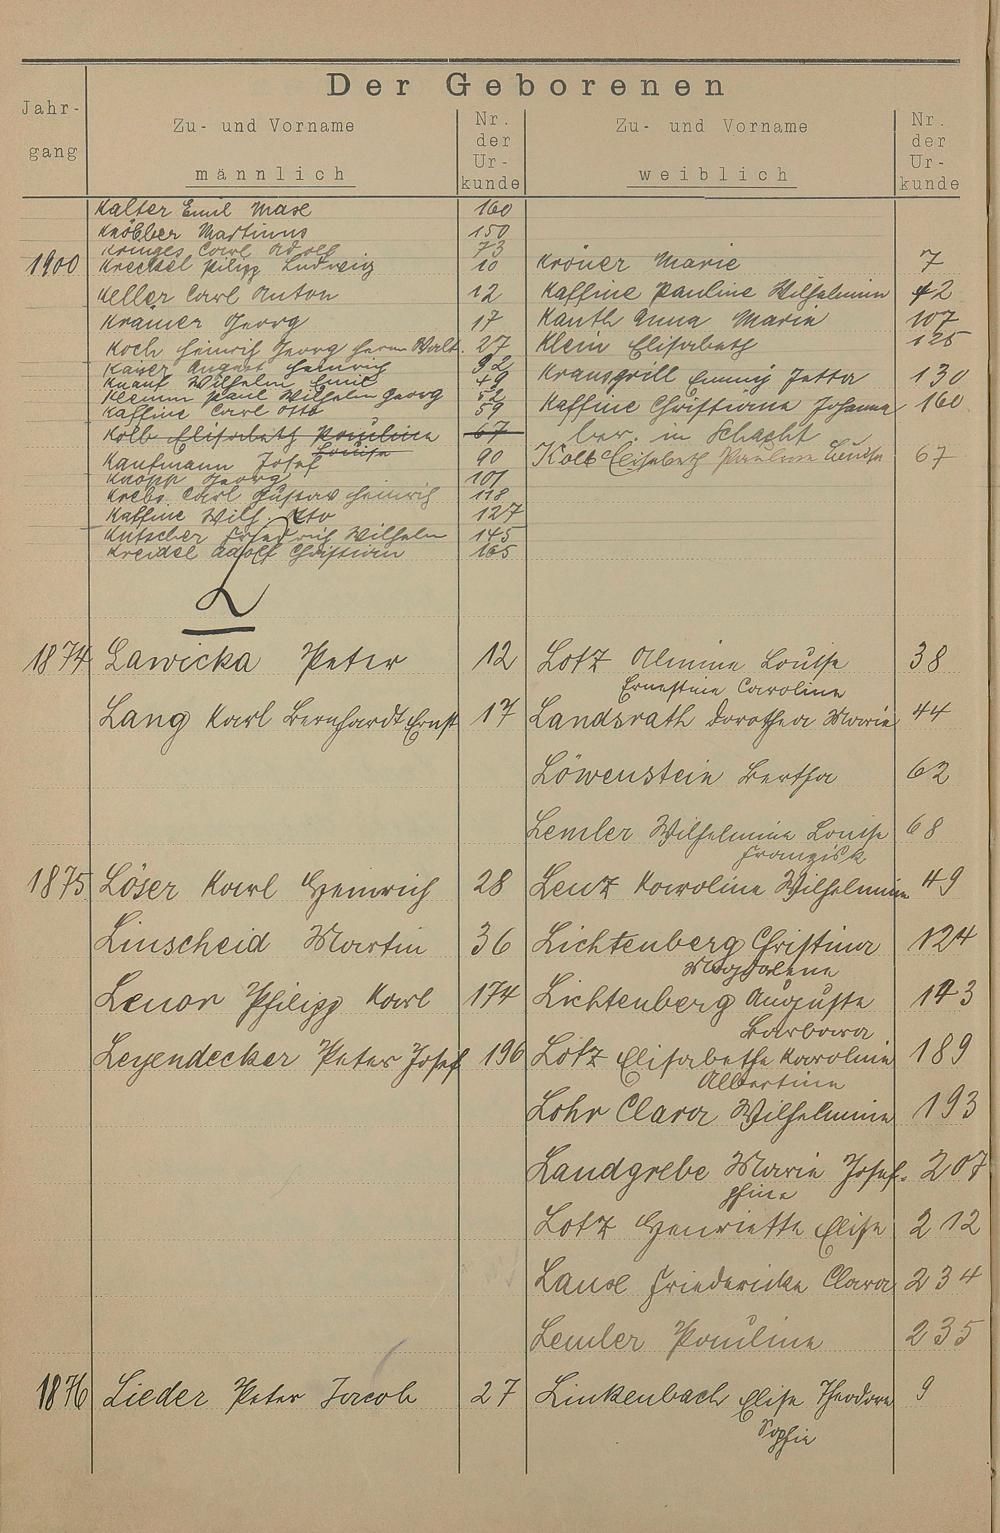 Der Geborenen
Jahrgang
Zu- und Vorname
männlich
Nr. der Urkunde
Zu- und Vorname
weiblich
Nr. der Urkunde
Kalter Emil Max 160
Knöbber Martinus 150
Kringes Carl Adolf 73
1900 Kreckel Pilipp Ludwig 10 Kröner Marie 7
Keller Carl Anton 12 Kaffine Pauline Wilhelmine 42
Krämer Georg 17 Kauth Anna Maria 107
Koch Heinrich Georg Herm. Walt. 27 Klein Elisabeth 125
Kaiser August Heinrich 32
Knauf Wilhelm Emil 49 Krausgrill Emmy Jetta 130
Klemm Paul Wilhelm Georg 52
Kaffine Carl Otto 59 Kaffine Christiane Johanna 160
Kolb Elisabeth Pauline 67 ber. in Schacht
Louise
Kaufmann Josef 90 Kolb Elisabeth Pauline Louise 67
Knopp Georg 101
Krebs Carl Gustav Heinrich 118
Kaffine Wilh. Otto 127
Kutscher Friedrich Wilhelm 145
Kreidel Adolf Christian 165
L
1874 Lawicka Peter 12 Lotz Almine Louise 38
Ernestine Caroline
Lang Karl Bernhardt Ernst 17 Landsrath Dorothea Marie 44
Löwenstein Bertha 62
Lemler Wilhelmine Louise 68
Franzisk
1875 Löser Karl Heinrich 28 Lenz Karoline Wilhelmine 49
Linscheid Martin 36 Lichtenberg Christina 124
Magdalene
Lenor Philipp Karl 174 Lichtenberg Auguste 143
Barbara
Leyendecker Peter Josef 196 Lotz Elisabethe Karoline 189
Albertine
Lohr Clara Wilhelmine 193
Landgrebe Marie Josef- 207
phine
Lotz Henriette Elise 212
Laux Friedericke Clara 234
Lemler Pauline 235
1876 Lieder Peter Jacob 27 Linkenbach Elise Theodore 9
Sophie